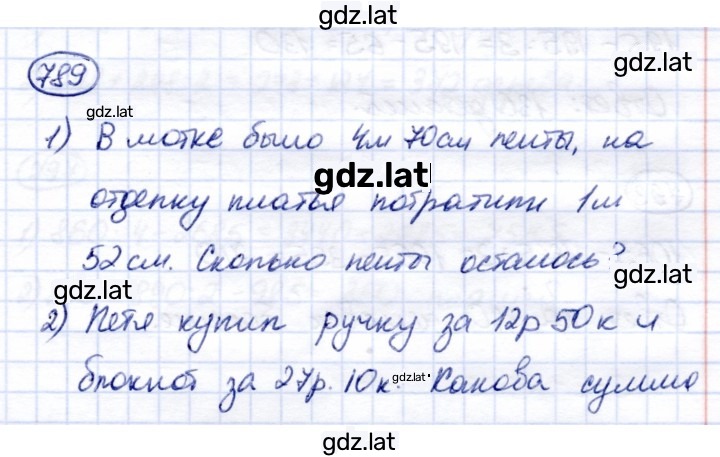 gdz.lat
789
gdz.lat
gdz.lat
1) В мотке было 4м 70см ленты, на
gdz.lat
отделку платья потратили 1м
52см. Сколько ленты осталось?
gdz.lat
gdz.lat
2) Петя купил ручку за 12р 50к и
блокнот за 27р. 10к. gdz.lat Какова сумма
gdz.lat